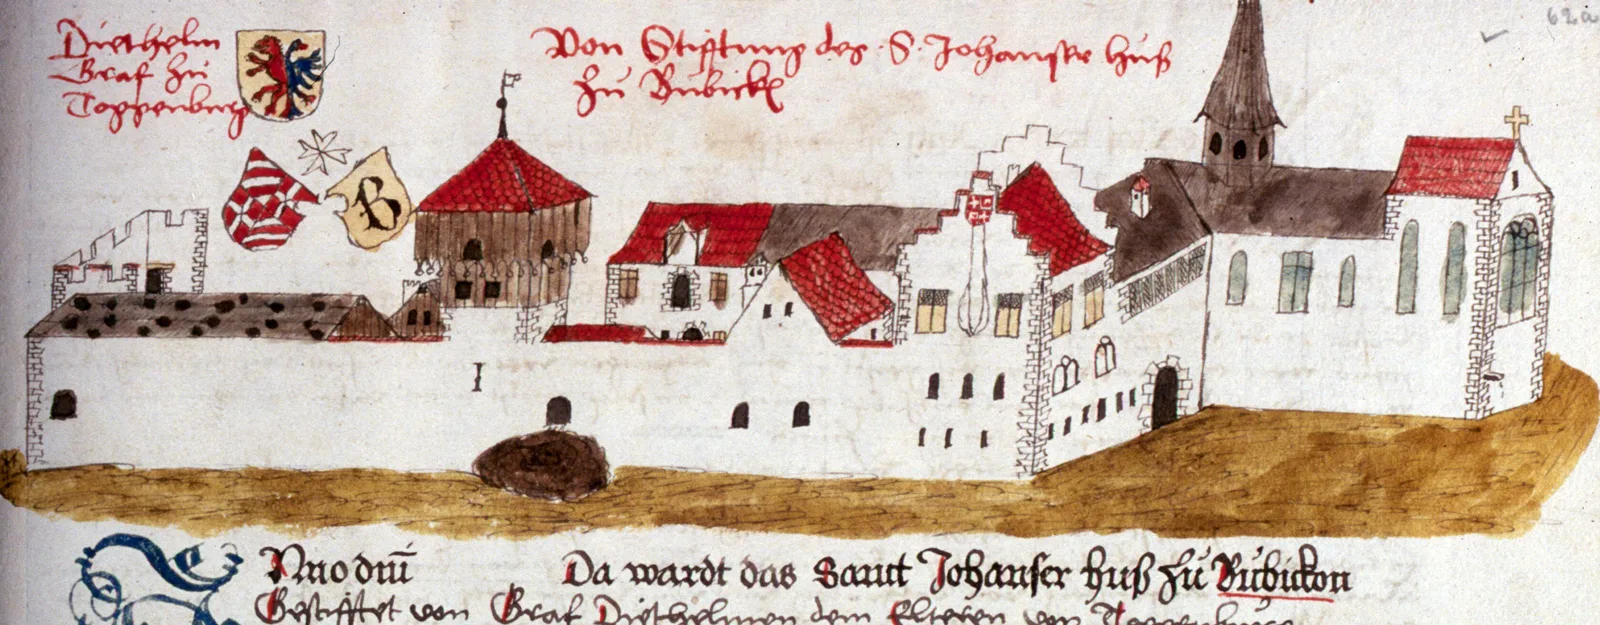 Diethelm
Graf zu
Toggenburg
Von Stifftung des S. Johanser huß
zu Bubickē
62a
B
I
Anno dnī Da wardt das Sanct Johanser huß zů Bůbickon
Gestifftet von Graf Diethelmen dem Elteren von Toggenburg